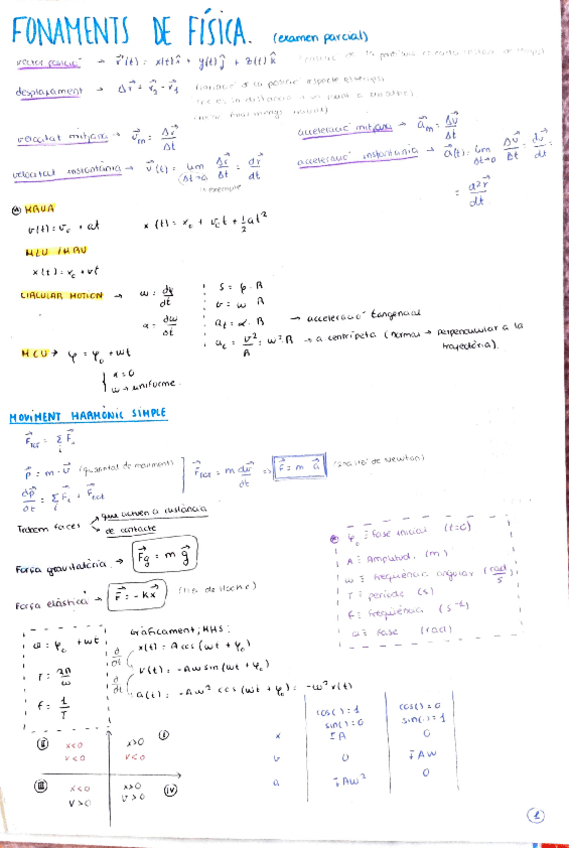 FONAMENTS DE FÍSICA. (examen parcial)
vector posició → r⃗(t) = x(t)î + y(t)ĵ + z(t)k̂
desplaçament → Δr⃗ = r⃗₂ - r⃗₁
velocitat mitjana → v⃗m = Δr⃗/Δt
acceleració mitjana → a⃗m = Δv⃗/Δt
velocitat instantània → v⃗(t) = lim Δt→0 Δr⃗/Δt = dr⃗/dt
acceleració instantània → a⃗(t) = lim Δt→0 Δv⃗/Δt = dv⃗/dt =
= d²r⃗/dt
MRUA
v(t) = v₀ + at
x(t) = x₀ + v₀t + ½at²
MLU / MRU
x(t) = x₀ + vt
CIRCULAR MOTION → ω = dφ/dt
α = dω/dt
s = φ · R
v = ω R
at = α · R → acceleració tangencial
ac = v²/R = ω²R → a centrípeta (normal → perpendicular a la trajectòria).
MCU → φ = φ₀ + ωt
α = 0
ω → uniforme.
MOVIMENT HARMÒNIC SIMPLE
F⃗ = Σ F⃗
p⃗ = m · v⃗ (quantitat de moviment)
F⃗ = m dv⃗/dt ⇒ F⃗ = m a⃗ (Newton)
dp⃗/dt = Σ F⃗ = F⃗
Trobem forces
que actuen a distància
de contacte
Força gravitatòria → F⃗g = m g⃗
Força elàstica → F⃗ = -Kx⃗ (llei de Hooke)
φ₀ = Fase inicial (t=0)
A = Amplitud. (m)
ω = Freqüència angular (rad/s)
T = període (s)
f = Freqüència (s⁻¹)
fase (rad)
φ₀ + ωt
T = 2π/ω
f = 1/T
Gràficament; MHS:
d/dt x(t) = A cos(ωt + φ₀)
d/dt v(t) = -Aω sin(ωt + φ₀)
a(t) = -Aω² cos(ωt + φ₀) = -ω²x(t)
cos( ) = 1
sin( ) = 0
cos( ) = 0
sin( ) = 1
x ±A 0
v 0 ∓Aω
a ∓Aω² 0
II x<0 v<0
x>0 v<0 I
III x<0 v>0
x>0 v>0 IV
1